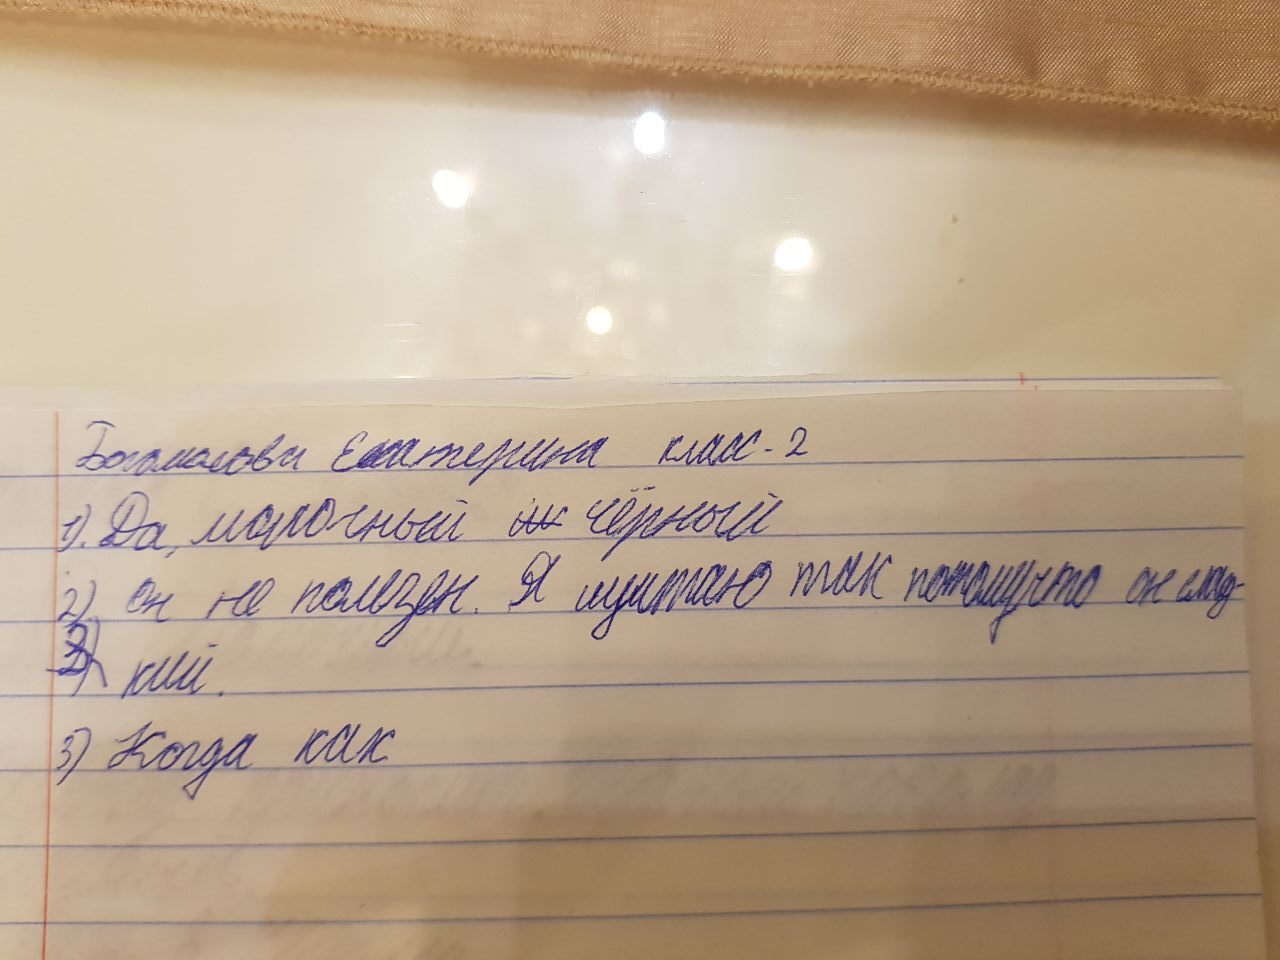 Богомолова Екатерина класс-2
1). Да, молочный чёрный
2). он не полезен. Я щитаю так потомучто он слад-
кий.
3) Когда как